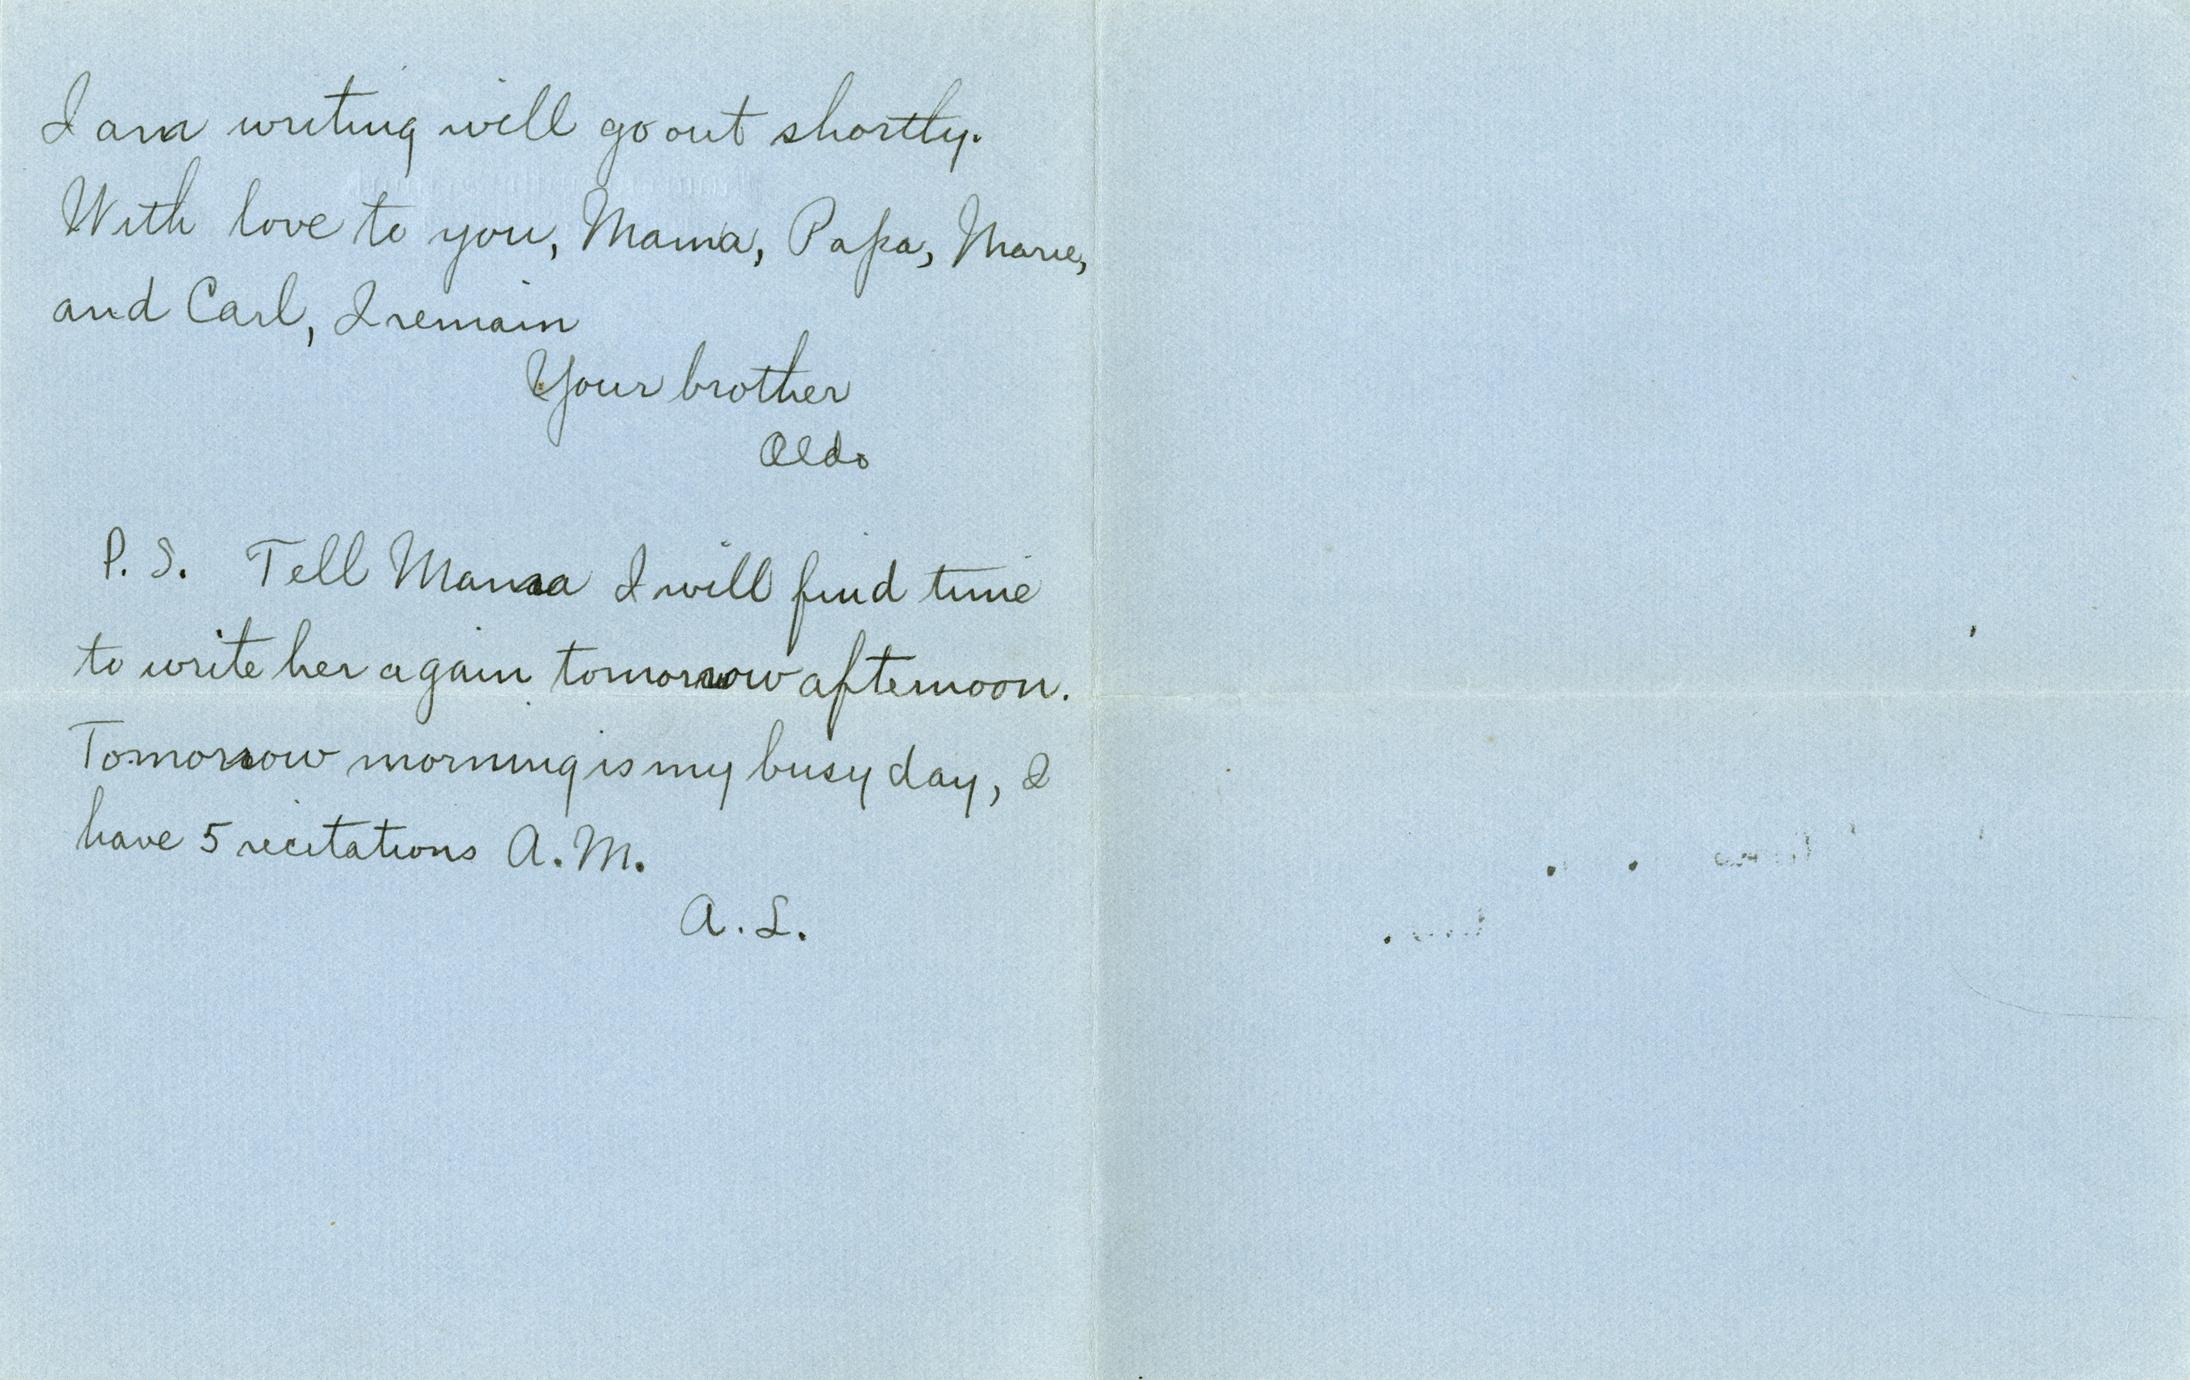 I am writing will go out shortly.
With love to you, Mama, Papa, Marie,
and Carl, I remain
Your brother
Aldo
P. S. Tell Mama I will find time
to write her again tomorrow afternoon.
Tomorrow morning is my busy day, I
have 5 recitations A.M.
A. L.